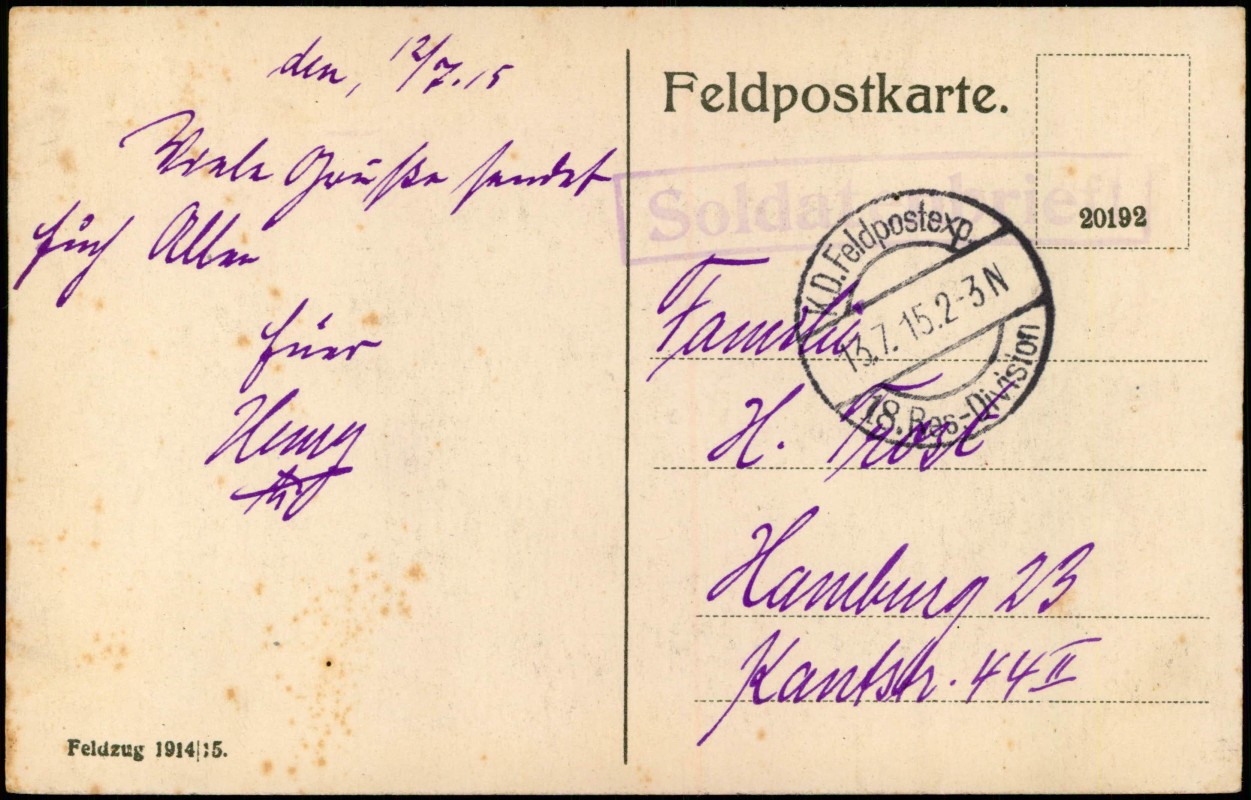 den, 12/7.15
Viele Grüße sendet
Euch Allen
Euer
Henry
Feldzug 1914|15.
Feldpostkarte.
Soldatenbrief!
20192
K.D.Feldpostexp.
13.7.15.2-3N
18.Res-Division
Familie
H. Trost
Hamburg 23
Kantstr. 44 II